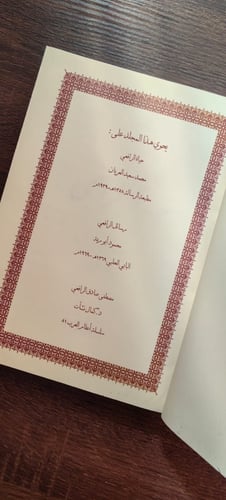 يحوي هذا المجلد على :
حياة الرافعي
محمد سعيد العريان
مطبعة الرسالة ١٣٥٨هـ-١٩٣٩م
رسائل الرافعي
محمود أبو رية
البابي الحلبي ١٣٦٩هـ-١٩٥٠م
مصطفى صادق الرافعي
د. كمال نشأت
سلسلة أعلام العرب ٨١